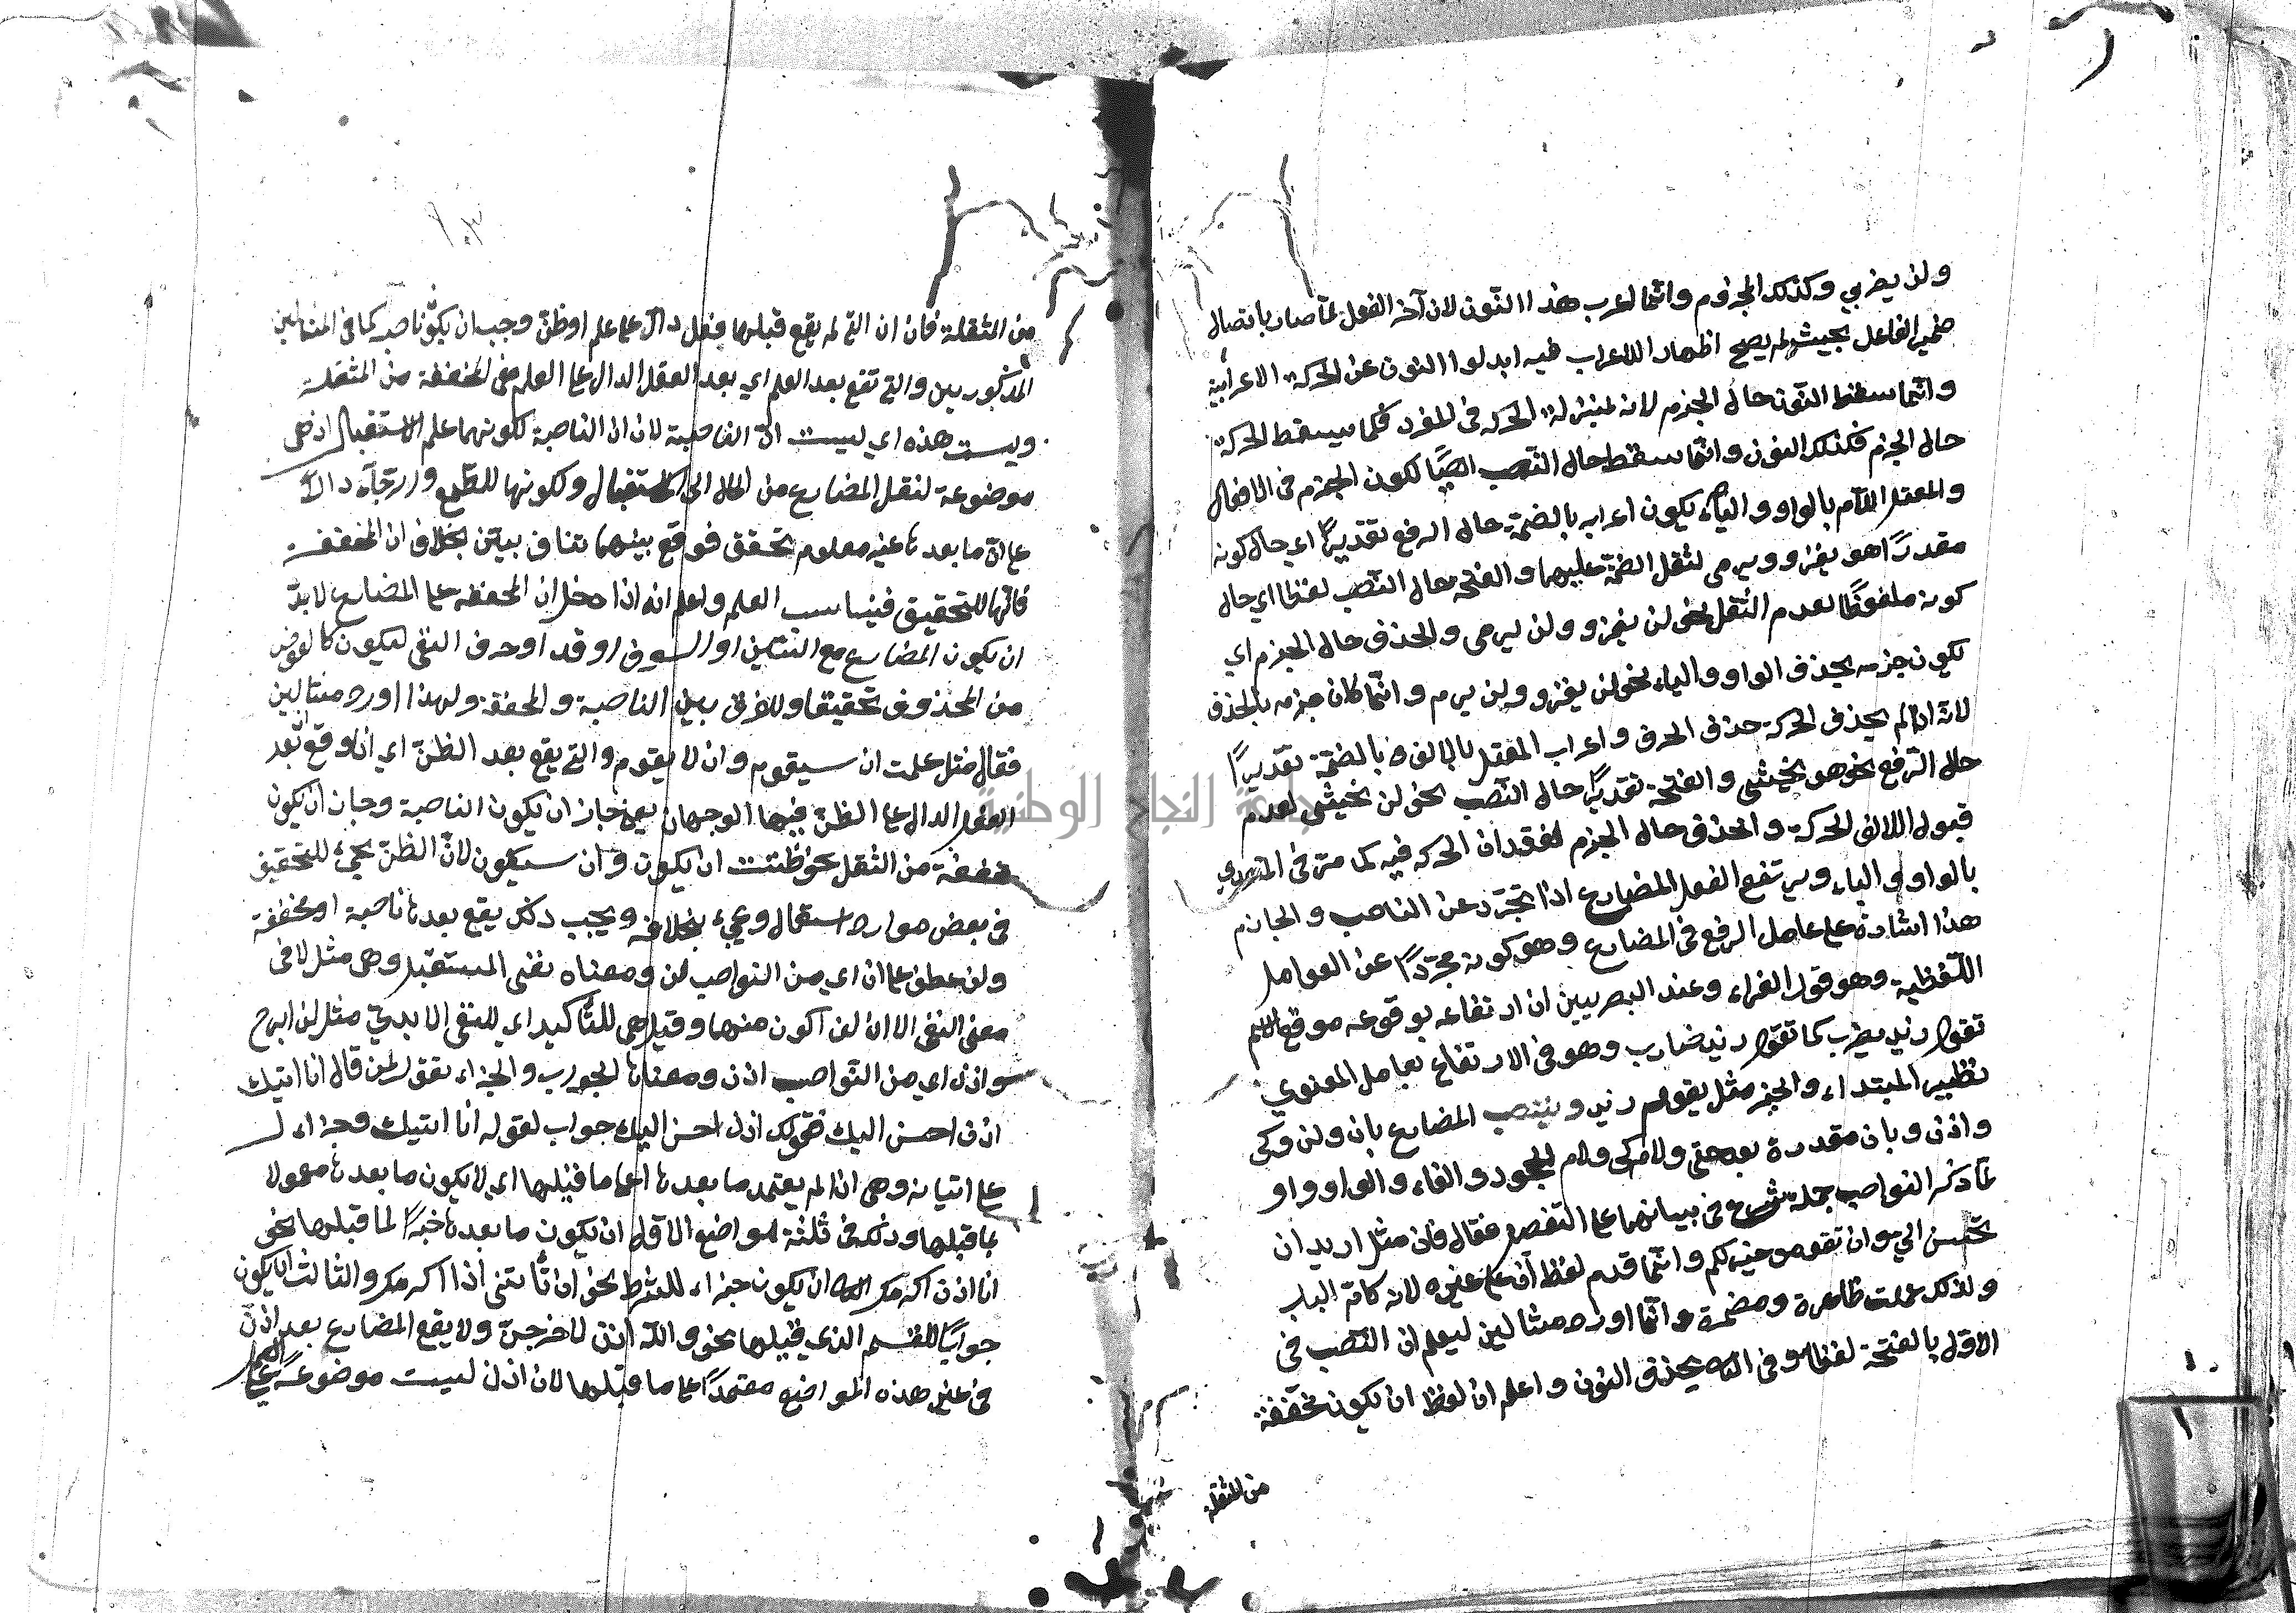 ولن يضربي وكذلك المجزوم وانما اعرب هذا النون لان آخر الفعل لما صار باتصال
ضمير الفاعل بحيث لم يصح اظهار الاعراب فيه ابدلوا النون عن الحركة الاعرابية
وانما سقط النون حال الجزم لانه بمنزلة الحركة في المفرد فكما يسقط الحركة
حال الجزم فكذلك النون وانما سقط حال النصب ايضا لكون الجزم في الافعال
والمعتل اللام بالواو والياء يكون اعرابه بالضمة حال الرفع تقديرا اي حال كونه
مقدرا هو يغزو ويرمي لثقل الضمة عليهما والفتحة حال النصب لفظا اي حال
كونه ملفوظا لعدم الثقل نحو لن يغزو ولن يرمي والحذف حال الجزم اي
يكون جزمه بحذف الواو والياء نحو لن يغزو ولن يرم وانما كان جزمه بالحذف
لانه اذا لم يحذف الحركة حذف الحرف واعراب المعتل بالالف بالضمة تقديرا
حال الرفع نحو هو يخشى والفتحة تقديرا حال النصب نحو لن يخشى لعدم
قبول الالف الحركة والحذف حال الجزم لفقدان الحركة فيه كما مر في
بالواو والياء ويرتفع الفعل المضارع اذا تجرد عن الناصب والجازم
هذا اشارة على عامل الرفع في المضارع وهو كونه مجردا عن العوامل
اللفظية وهو قول الفراء وعند البصريين ان ارتفاعه بوقوعه موقع الاسم
تقول زيد يضرب كما تقول زيد ضارب وهو في الارتفاع بعامل المعنوي
نظير المبتداء والخبر مثل يقوم زيد وينتصب المضارع بان ولن وكي
واذن وبان مقدرة بعد حتى ولام كي ولام الجحود والفاء والواو واو
لما ذكر النواصب جملة شرع في بيانها على التفصيل فقال فان مثل اريد ان
تحسن الي وان تقوموا خير لكم وانما قدم لفظ ان على غيره لانه كام الباب
ولذلك عملت ظاهرة ومضمرة وانما اورد مثالين ليعلم ان النصب في
الاول بالفتحة لفظا وفي الثاني بحذف النون واعلم ان لفظ ان يكون مخففة
من المثقلة
١٠٣
من الثقلة فان ان التي لم يقع قبلها فعل دال على علم اوظن وجب ان يكون ناصبه كما في المثالين
المذكورين والتي تقع بعد العلم اي بعد الفعل الدال على العلم هي المخففة من المثقلة
وليست هذه اي ليست ان الناصبة لان ان الناصبة لكونها علم الاستقبال اذ هي
موضوعة لنقل المضارع من الحال الى الاستقبال ولكونها للطمع والرجاء دالا
على ان ما بعدها غير معلوم التحقق فوقع بينهما تناف بين بخلاف ان المخففة
فانها للتحقيق فيناسب العلم واعلم انه اذا دخل ان المخففة على المضارع لا بد
ان يكون المضارع مع السين او السوف او قد او حرف النفي ليكون كالعوض
من المحذوف تحقيقا وللفرق بين الناصبة والمخففة ولهذا اورد مثالين
فقال مثل علمت ان سيقوم وان لا يقوم والتي يقع بعد الظن اي ان وقع بعد
الفعل الدال على الظن ففيها الوجهان يعني جاز ان يكون الناصبة وجاز ان يكون
مخففة من الثقل نحو ظننت ان يكون وان سيكون لان الظن يجيء للتحقيق
في بعض موارد استعمال ويجيء بخلافه ويجب ذكر يقع بعدها ناصبة او مخففة
ولن عطف على ان اي من النواصب لن ومعناه نفي المستقبل وهي مثل لا في
معنى النفي الا ان لن آكون منها وقيل هي للتأكيد اي للنفي الابدي مثل لن ابرح
واذن اي من النواصب اذن ومعناها الجواب والجزاء تقول لمن قال انا اتيك
اذن احسن اليك فقولك اذن احسن اليك جواب لقوله انا اتيك وجزاء له
على اتيانه وهي اذا لم يعتمد ما بعدها على ما قبلها اي لا يكون ما بعدها معمولا
بما قبلها وذلك في ثلثة مواضع الاول ان يكون ما بعدها خبرا لما قبلها نحو
انا اذن اكرمك الثاني ان يكون جزاء للشرط نحو ان تأتني اذا اكرمك والثالث ان يكون
جوابا للقسم الذي قبلها نحو والله اذن لاخرجن ولا يقع المضارع بعد اذن
في غير هذه المواضع معتمدا على ما قبلها لان اذن ليست موضوعة